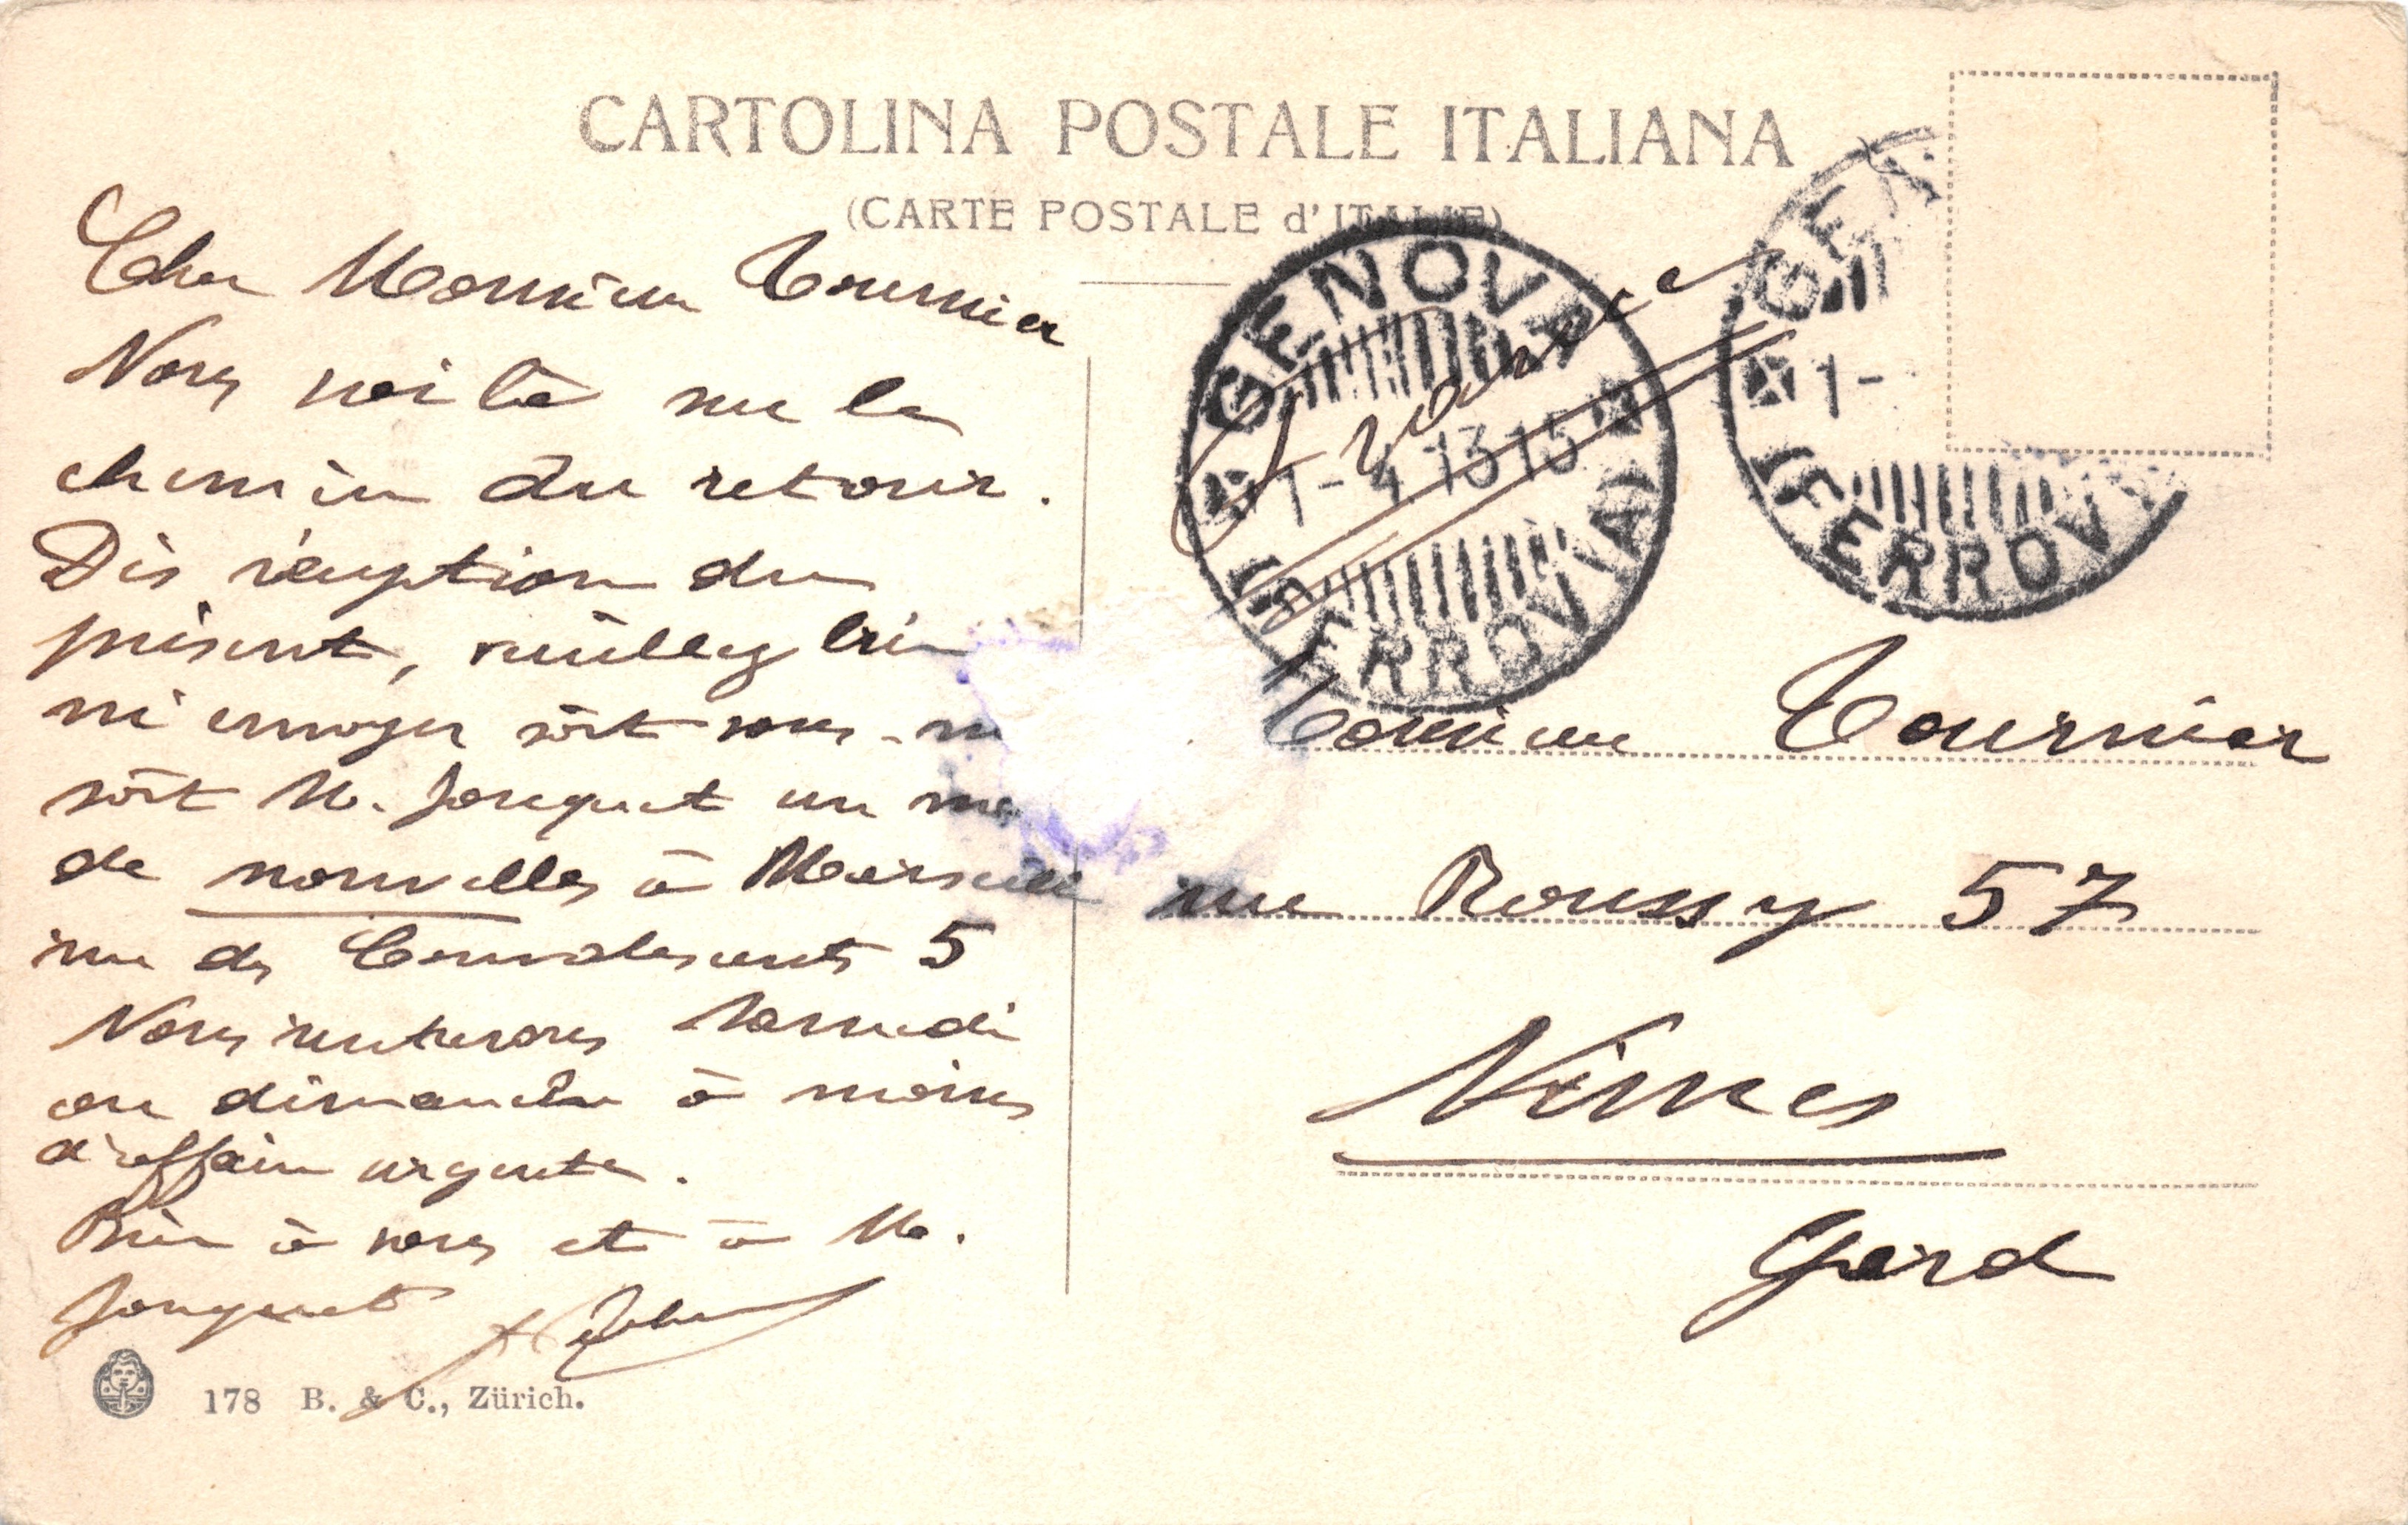 CARTOLINA POSTALE ITALIANA
(CARTE POSTALE d'ITALIE)
Cher Monsieur Tournier
Nous voilà sur le
chemin du retour.
Dès réception du
présent, veuillez bien
m'envoyer soit vous-m
soit M. Jouquet un mo
de nouvelles à Marseille
rue des Convalescents 5
Nous rentrerons Samedi
ou dimanche à moins
d'affaire urgente.
Bien à vous et à M.
Jouquet
178 B. & C., Zürich.
GENOVA
1-4 13 15
(FERROVIA)
GEN
1-
(FERROV
France
Monsieur Tournier
rue Roussy 57
Nîmes
Gard